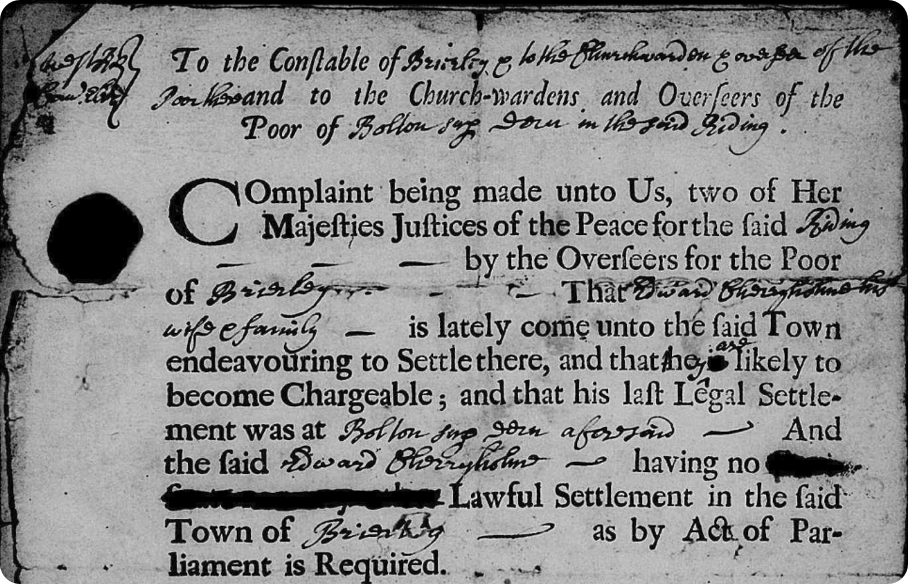 West Rid
To the Conſtable of Brierley & to the Churchwarden & overſeer of the
Poor there and to the Church-wardens and Overſeers of the
Poor of Bolton sup Dern in the said Riding.
COmplaint being made unto Us, two of Her
Majeſties Juſtices of the Peace for the ſaid Riding
— — — by the Overſeers for the Poor
of Brierley — - — That Edward Cherryholme his
wife & family — is lately come unto the ſaid Town
endeavouring to Settle there, and that they are likely to
become Chargeable; and that his laſt Legal Settle-
ment was at Bolton sup Dern aforesaid — And
the ſaid Edward Cherryholme — having no
Lawful Settlement in the ſaid
Town of Brierley — as by Act of Par-
liament is Required.